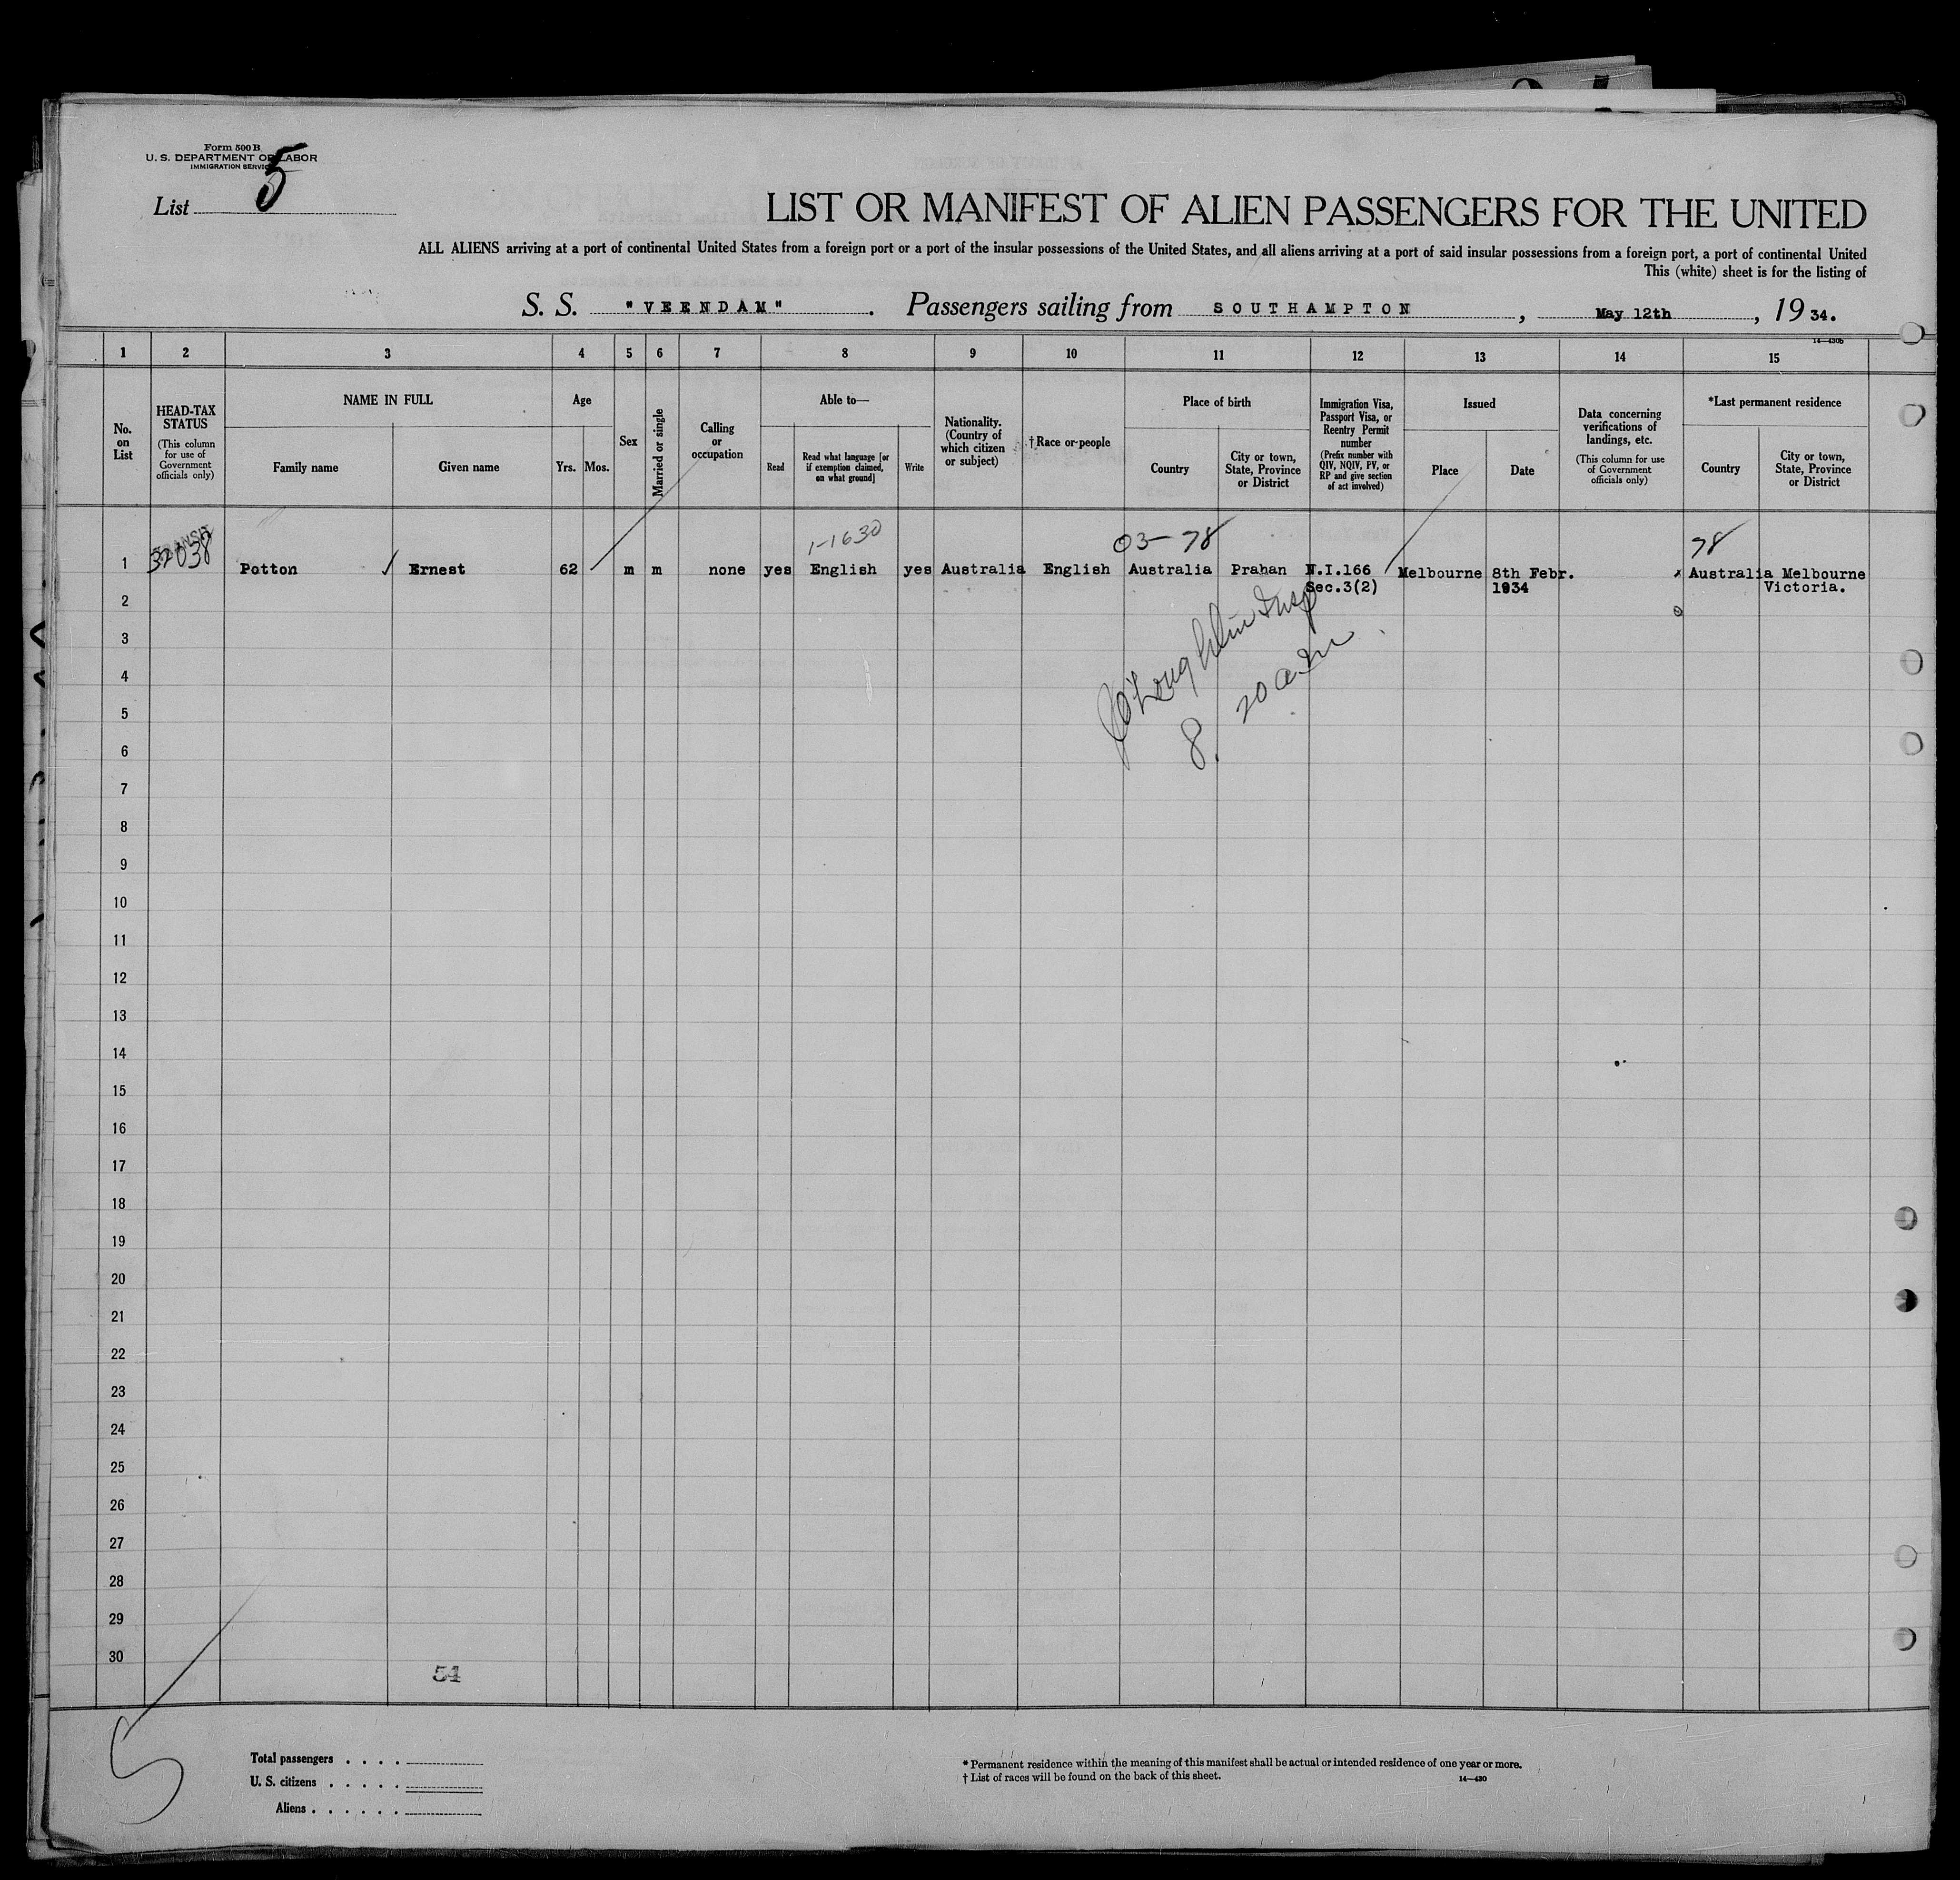 Form 500 B
U. S. DEPARTMENT OF LABOR
IMMIGRATION SERVICE
List 5
LIST OR MANIFEST OF ALIEN PASSENGERS FOR THE UNITED
ALL ALIENS arriving at a port of continental United States from a foreign port or a port of the insular possessions of the United States, and all aliens arriving at a port of said insular possessions from a foreign port, a port of continental United
This (white) sheet is for the listing of
S. S. "VEENDAM". Passengers sailing from SOUTHAMPTON, May 12th, 1934.
14—430b
1 2 3 4 5 6 7 8 9 10 11 12 13 14 15
No. on List
HEAD-TAX STATUS
(This column for use of Government officials only)
NAME IN FULL
Family name
Given name
Age
Yrs.
Mos.
Sex
Married or single
Calling or occupation
Able to—
Read
Read what language [or if exemption claimed, on what ground]
Write
Nationality. (Country of which citizen or subject)
†Race or people
Place of birth
Country
City or town, State, Province or District
Immigration Visa, Passport Visa, or Reentry Permit number
(Prefix number with QIV, NQIV, PV, or RP and give section of act involved)
Issued
Place
Date
Data concerning verifications of landings, etc.
(This column for use of Government officials only)
*Last permanent residence
Country
City or town, State, Province or District
TRANSIT
1-1630
03- 78
78
1 37038 Potton Ernest 62 m m none yes English yes Australia English Australia Prahan N.I.166 Melbourne 8th Febr. x Australia Melbourne
Sec.3(2) 1934 Victoria.
2
3
4
5
6
7
8
9
10
11
12
13
14
15
16
17
18
19
20
21
22
23
24
25
26
27
28
29
30
54
5
Total passengers . . . .
U. S. citizens . . . . .
Aliens . . . . . .
* Permanent residence within the meaning of this manifest shall be actual or intended residence of one year or more.
† List of races will be found on the back of this sheet.
14—430